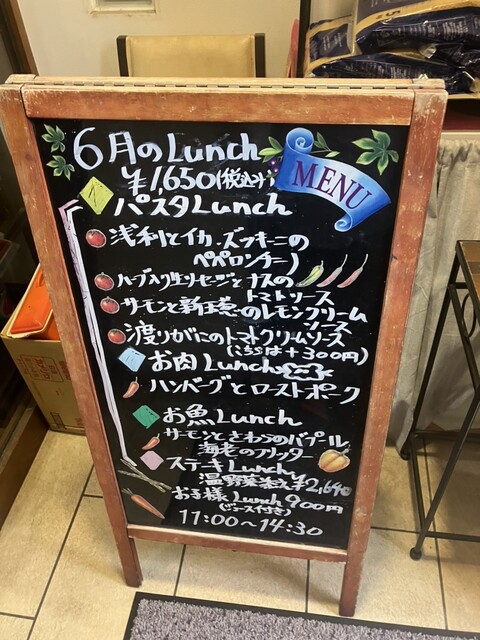 6月のLunch
MENU
¥1,650(税込み)
パスタLunch
浅利とイカ、ズッキーニの
ペペロンチーノ
ハーブ入り生ソーセージとナスの
トマトソース
サーモンと新玉葱のレモンクリーム
ソース
渡りがにのトマトクリームソース
(こちらは+300円)
お肉Lunch
ハンバーグとローストポーク
お魚Lunch
サーモンとさわらのバプール
海老のフリッター
ステーキLunch
温野菜添え ¥2,640
お子様Lunch 900円
(ジュース付き)
11:00~14:30